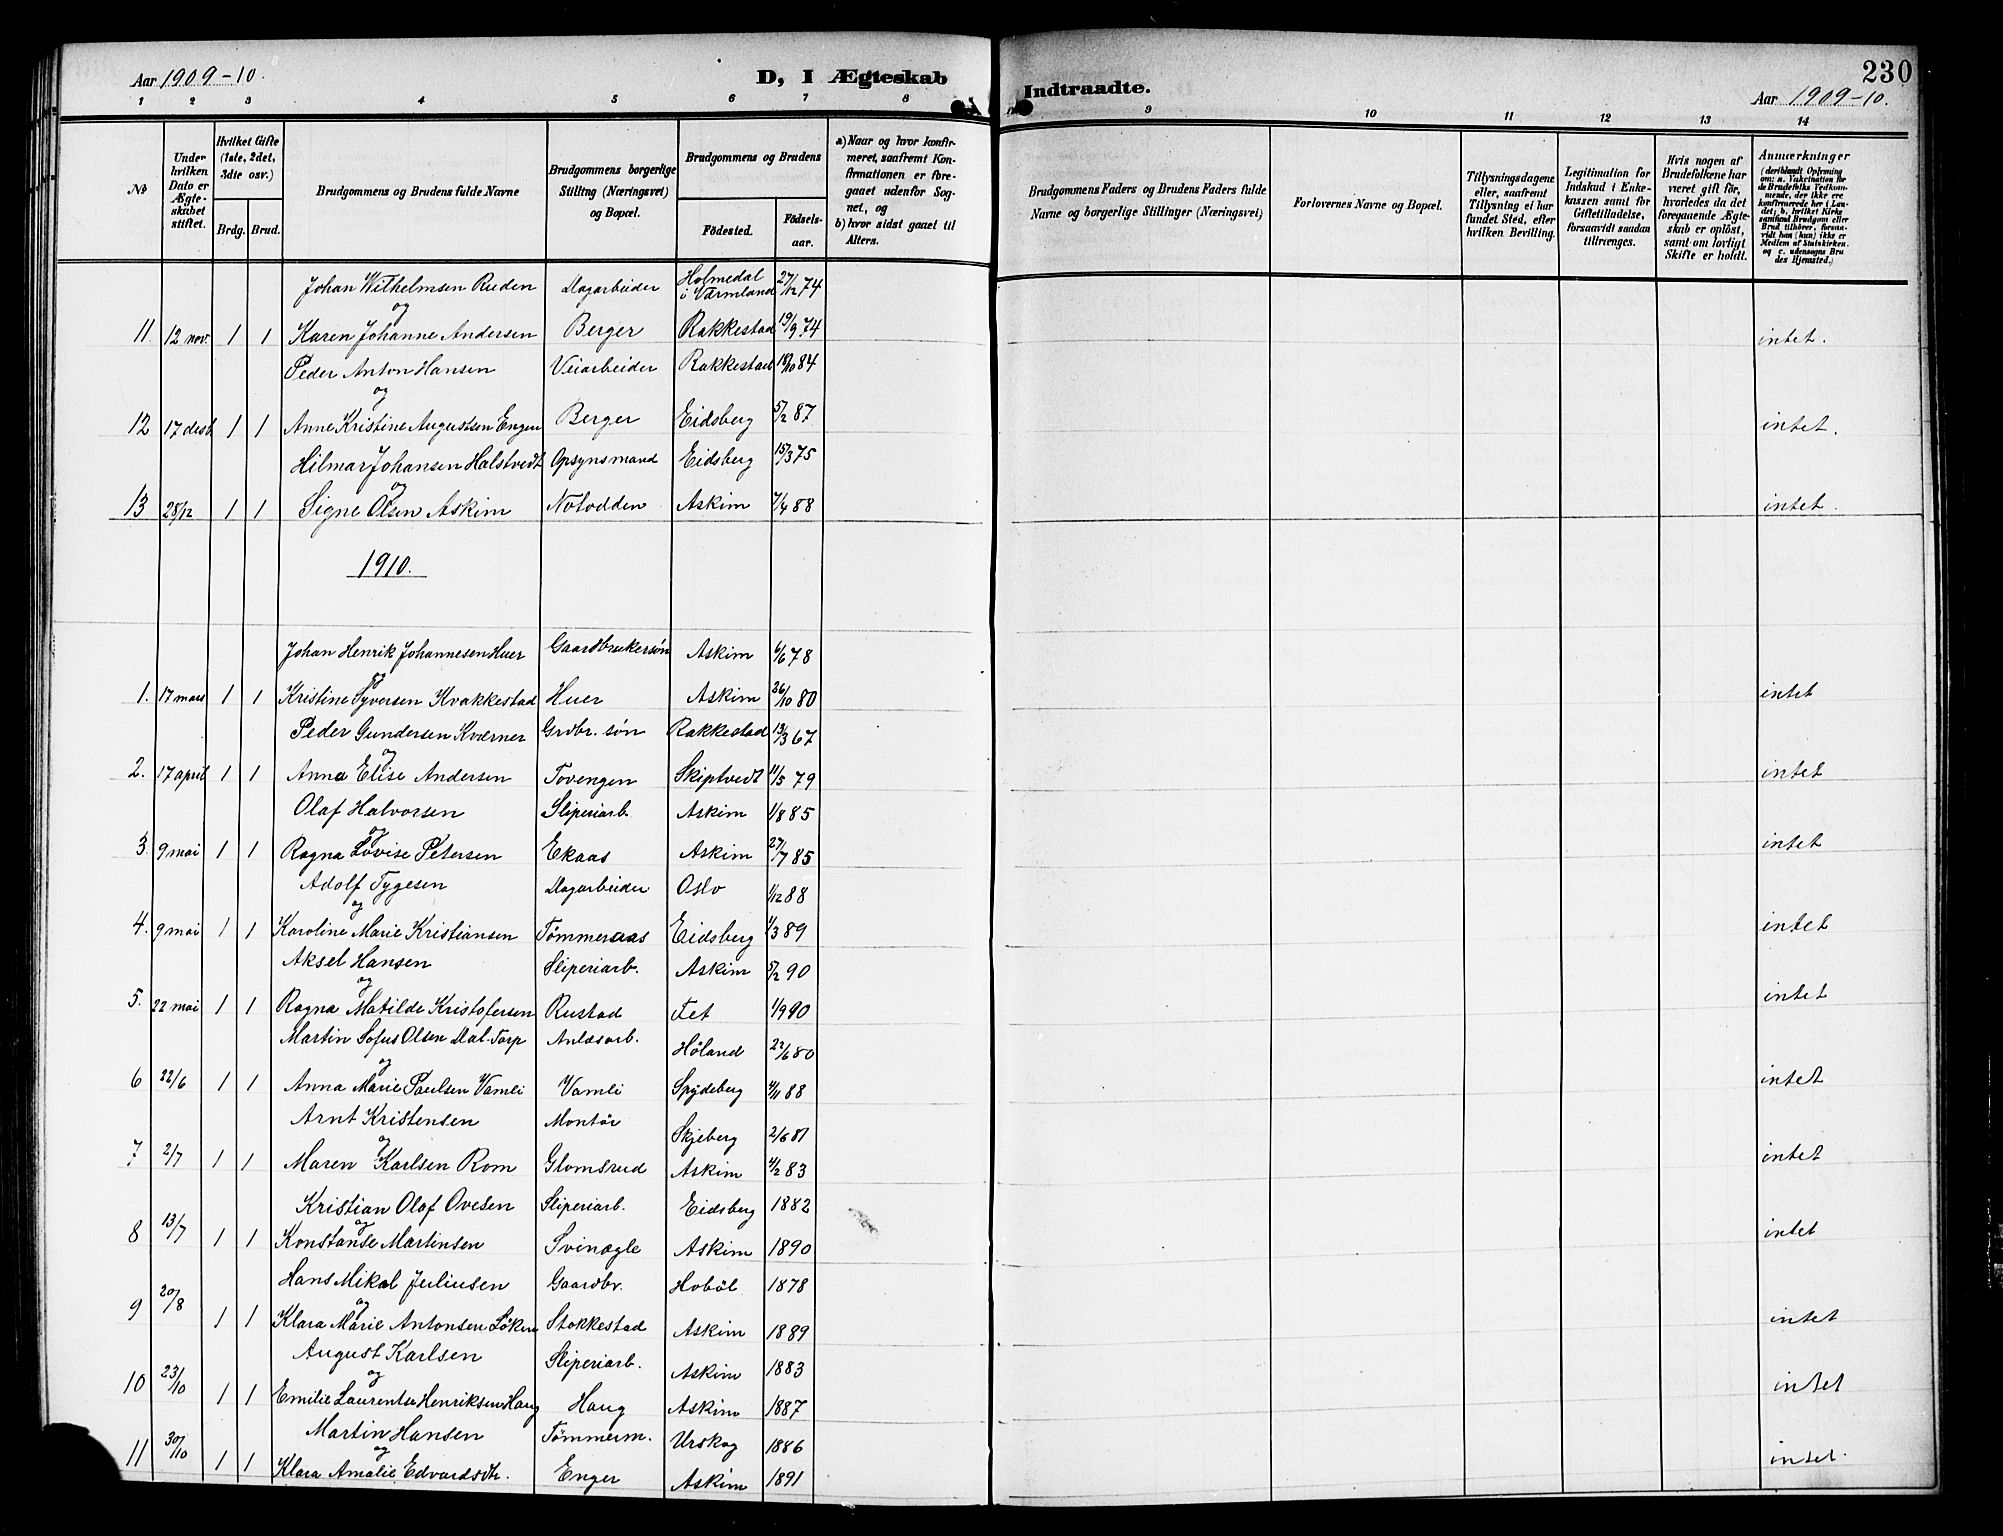 230
Aar 1909-10. D, I Ægteskab Indtraadte. Aar 1909-10.
1 2 3 4 5 6 7 8 9 10 11 12 13 14
No
Under hvilken Dato er Ægteskabet stiftet.
Hvilket Gifte (1ste, 2det, 3die osv.)
Brdg. Brud.
Brudgommens og Brudens fulde Navne
Brudgommens borgerlige Stilling (Næringsvei) og Bopæl.
Brudgommens og Brudens
Fødested. Fødselsaar.
a) Naar og hvor konfirmeret, saafremt Konfirmationen er foregaaet udenfor Sognet, og
b) hvor sidst gaaet til Alters.
Brudgommens Faders og Brudens Faders fulde Navne og borgerlige Stillinger (Næringsvei)
Forlovernes Navne og Bopæl.
Tillysningsdagene eller, saafremt Tillysning ei har fundet Sted, efter hvilken Bevilling.
Legitimation for Indskud i Enkekassen samt for Giftetilladelse, forsaavidt saadan tiltrænges.
Hvis nogen af Brudefolkene har været gift før, hvorledes da det foregaaende Ægteskab er opløst, samt om lovligt Skifte er holdt.
Anmærkninger (deriblandt Oplysning om: a. Vakcination for de Brudefolks Vedkommende, der ikke ere konfirmerede her i Landet; b. hvilket Kirkesamfund Brudgom eller Brud tilhører, forsaavidt han (hun) ikke er Medlem af Statskirken. og c. udensogns Brudes Hjemsted.)
Johan Wilhelmsen Ruden Dagarbeider Holmedal i Værmland 27/12 74
og
11. 12 nov. 1 1 Karen Johanne Andersen Berger Rakkestad 19/9 74 intet.
Peder Anton Hansen Veiarbeider Rakkestad 18/10 84
og
12 17 desb. 1 1 Anne Kristine Augustsen Engen Berger Eidsberg 5/2 87 intet.
Hilmar Johansen Halstvedt Opsynsmand Eidsberg 15/3 75
og
13 28/12 1 1 Signe Olsen Askim Notodden Askim 7/4 88 intet.
1910.
Johan Henrik Johannesen Huer Gaardbrukersøn Askim 6/6 78
og
1. 17 mars 1 1 Kristine Syversen Kvakkestad Huer Askim 26/10 80 intet
Peder Gundersen Kværner Grdbr. søn Rakkestad 13/3 67
og
2. 17 april 1 1 Anna Elise Andersen Tovengen Skiptvedt 11/5 79 intet
Olaf Halvorsen Sliperiarb. Askim 1/8 85
og
3. 9 mai 1 1 Ragna Lovise Petersen Ekaas Askim 27/7 85 intet
Adolf Tygesen Dagarbeider Oslo 1/12 88
og
4. 9 mai 1 1 Karoline Marie Kristiansen Tömmeraas Eidsberg 1/3 89 intet
Aksel Hansen Sliperiarb. Askim 5/2 90
og
5. 22 mai 1 1 Ragna Matilde Kristofersen Rustad Fet 1/9 90 intet
Martin Sofus Olsen Dal-Torp Anlæsarb. Høland 22/6 80
og
6 22/6 1 1 Anna Marie Paulsen Vamli Vamli Spydeberg 4/11 88 intet
Arnt Kristensen Montör Skjeberg 2/6 81
og
7. 2/7 1 1 Maren Karlsen Rom Glomsrud Askim 4/2 83 intet
Kristian Olaf Ovesen Sliperiarb. Eidsberg 1882
og
8 13/7 1 1 Konstanse Martinsen Svinægle Askim 1890 intet
Hans Mikal Juliusen Gaardbr. Hoböl 1878
og
9 20/8 1 1 Klara Marie Antonsen Löken Stokkestad Askim 1889 intet
August Karlsen Sliperiarb. Askim 1883
og
10 23/10 1 1 Emilie Laurentse Henriksen Haug Haug Askim 1887 intet
Martin Hansen Tömmerm. Urskog 1886
og
11 30/10 1 1 Klara Amalie Edvardsdtr. Enger Askim 1891 intet.